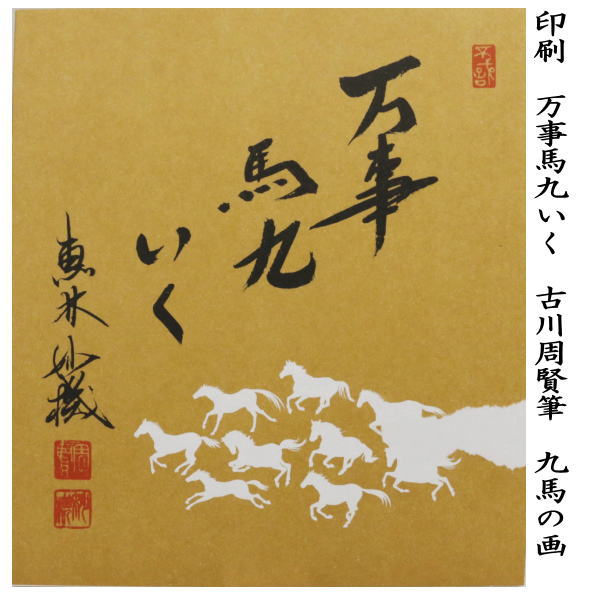 印刷　万事馬九いく　古川周賢筆　九馬の画
万事
馬九
いく
恵林妙機